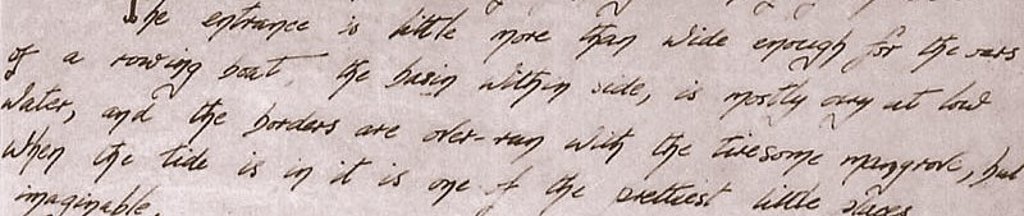 The entrance is little more than wide enough for the oars
of a rowing boat, the basin within side, is mostly dry at low
water, and the borders are over-run with the tiresome mangrove, but
when the tide is in it is one of the prettiest little places
imaginable.